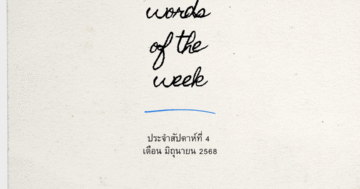 words
of the
week
ประจำสัปดาห์ที่ 4
เดือน มิถุนายน 2568